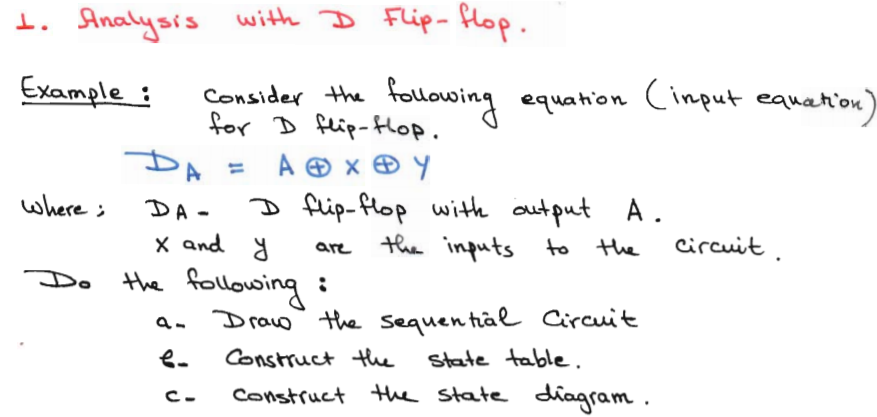 1. Analysis with D Flip-flop.
Example: Consider the following equation (input equation)
for D flip-flop.
D_A = A ⊕ x ⊕ y
Where; DA - D flip-flop with output A.
x and y are the inputs to the circuit.
Do the following:
a- Draw the sequential Circuit
b- Construct the state table.
c- Construct the state diagram.